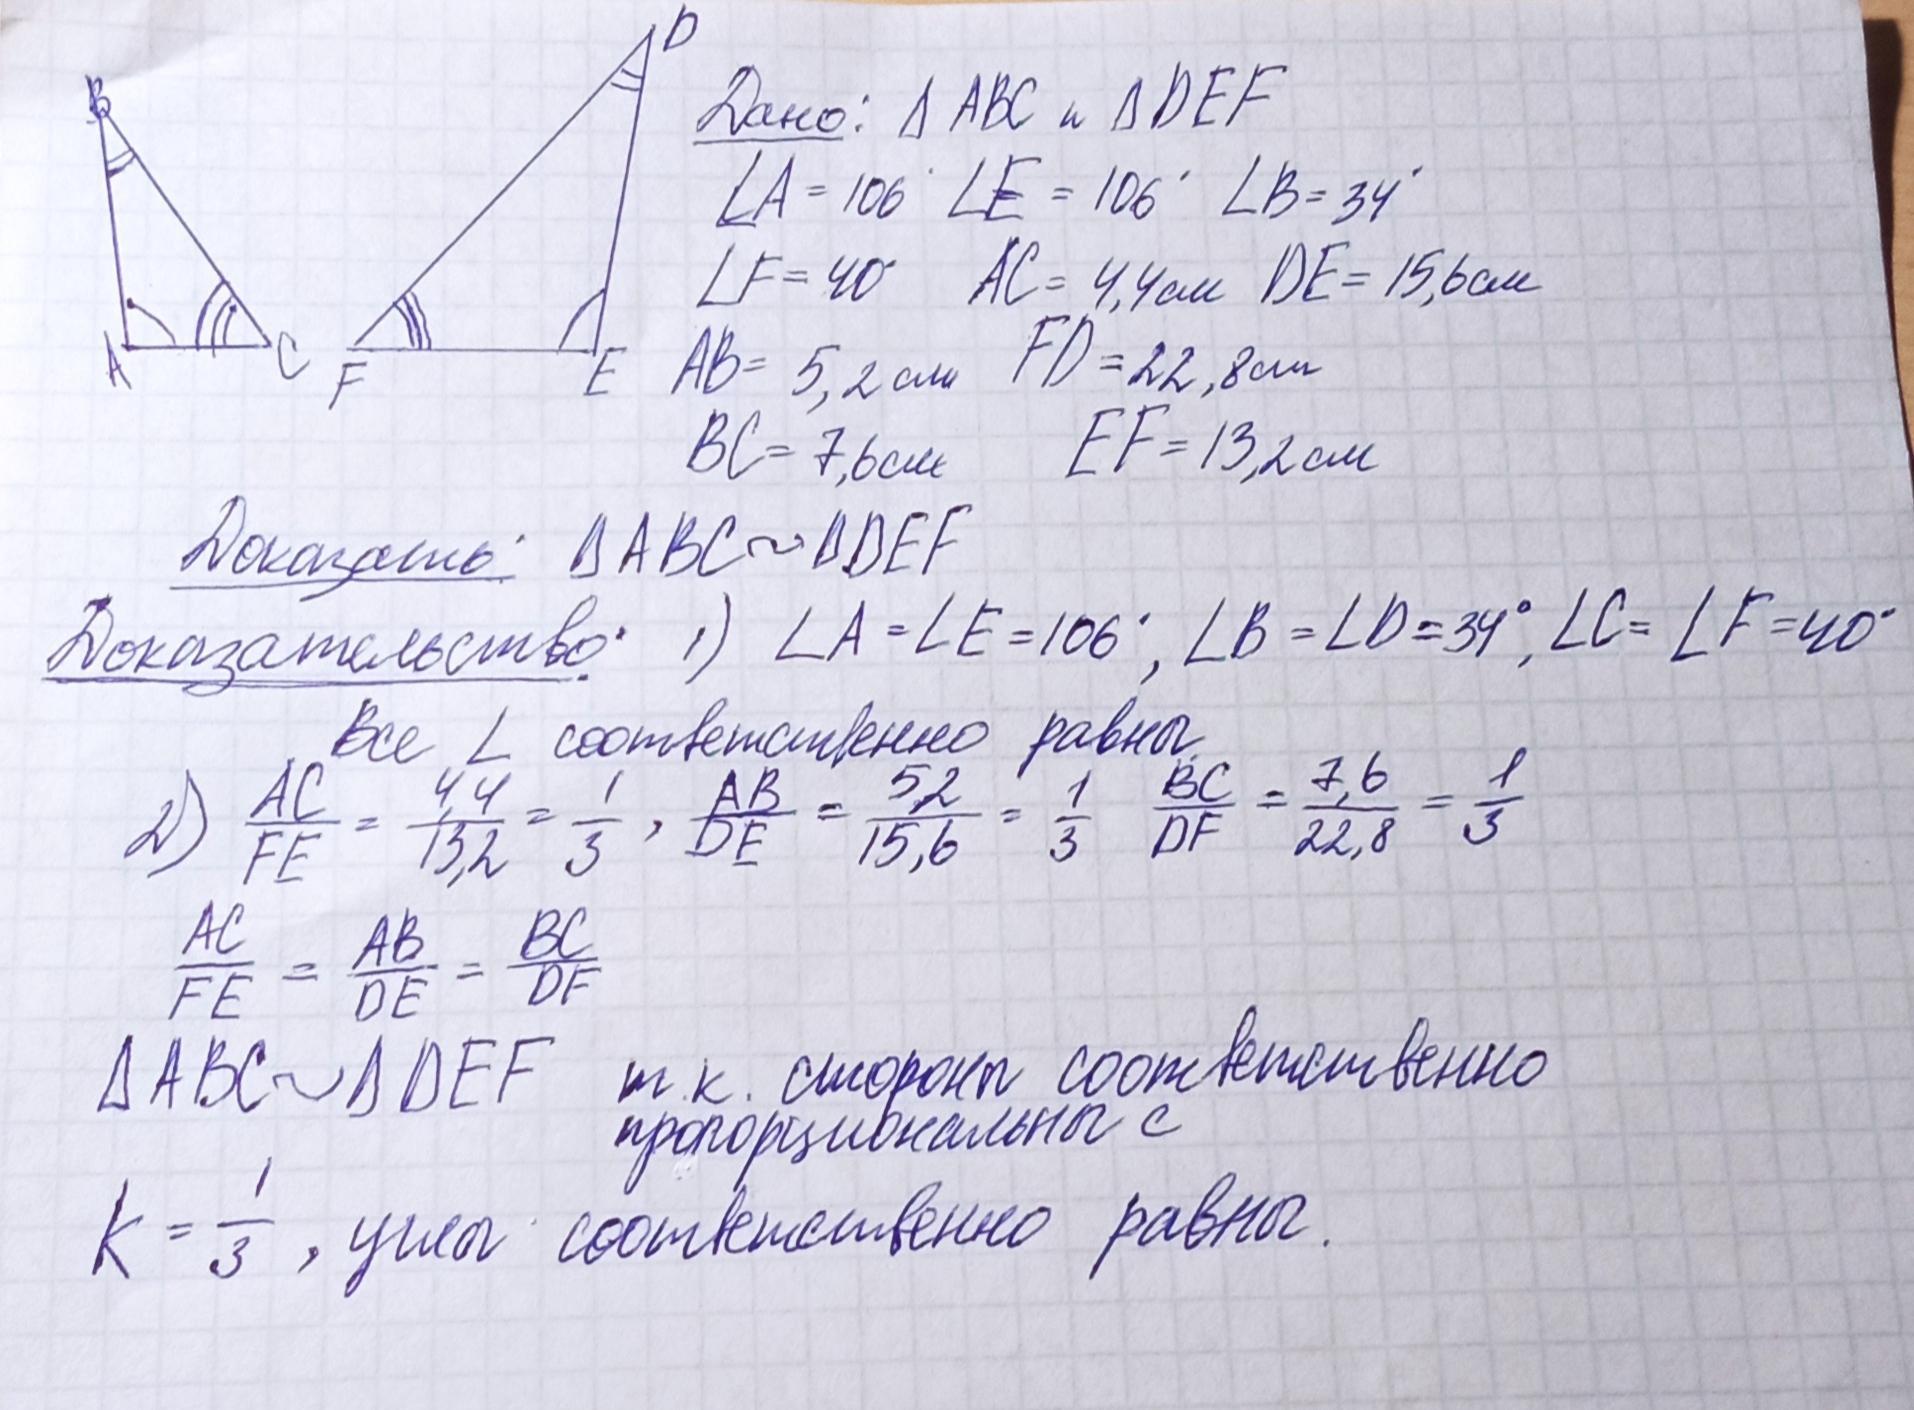 B
D
A
C
F
E
Дано: Δ ABC и Δ DEF
∠A = 106° ∠E = 106° ∠B = 34°
∠F = 40° AC = 4,4см DE = 15,6см
AB = 5,2см FD = 22,8см
BC = 7,6см EF = 13,2см
Доказать: Δ ABC ~ Δ DEF
Доказательство: 1) ∠A = ∠E = 106°, ∠B = ∠D = 34°, ∠C = ∠F = 40°
Все ∠ соответственно равны
2) AC/FE = 4,4/13,2 = 1/3, AB/DE = 5,2/15,6 = 1/3 BC/DF = 7,6/22,8 = 1/3
AC/FE = AB/DE = BC/DF
Δ ABC ~ Δ DEF т.к. стороны соответственно
пропорциональны с
k = 1/3, углы соответственно равны.